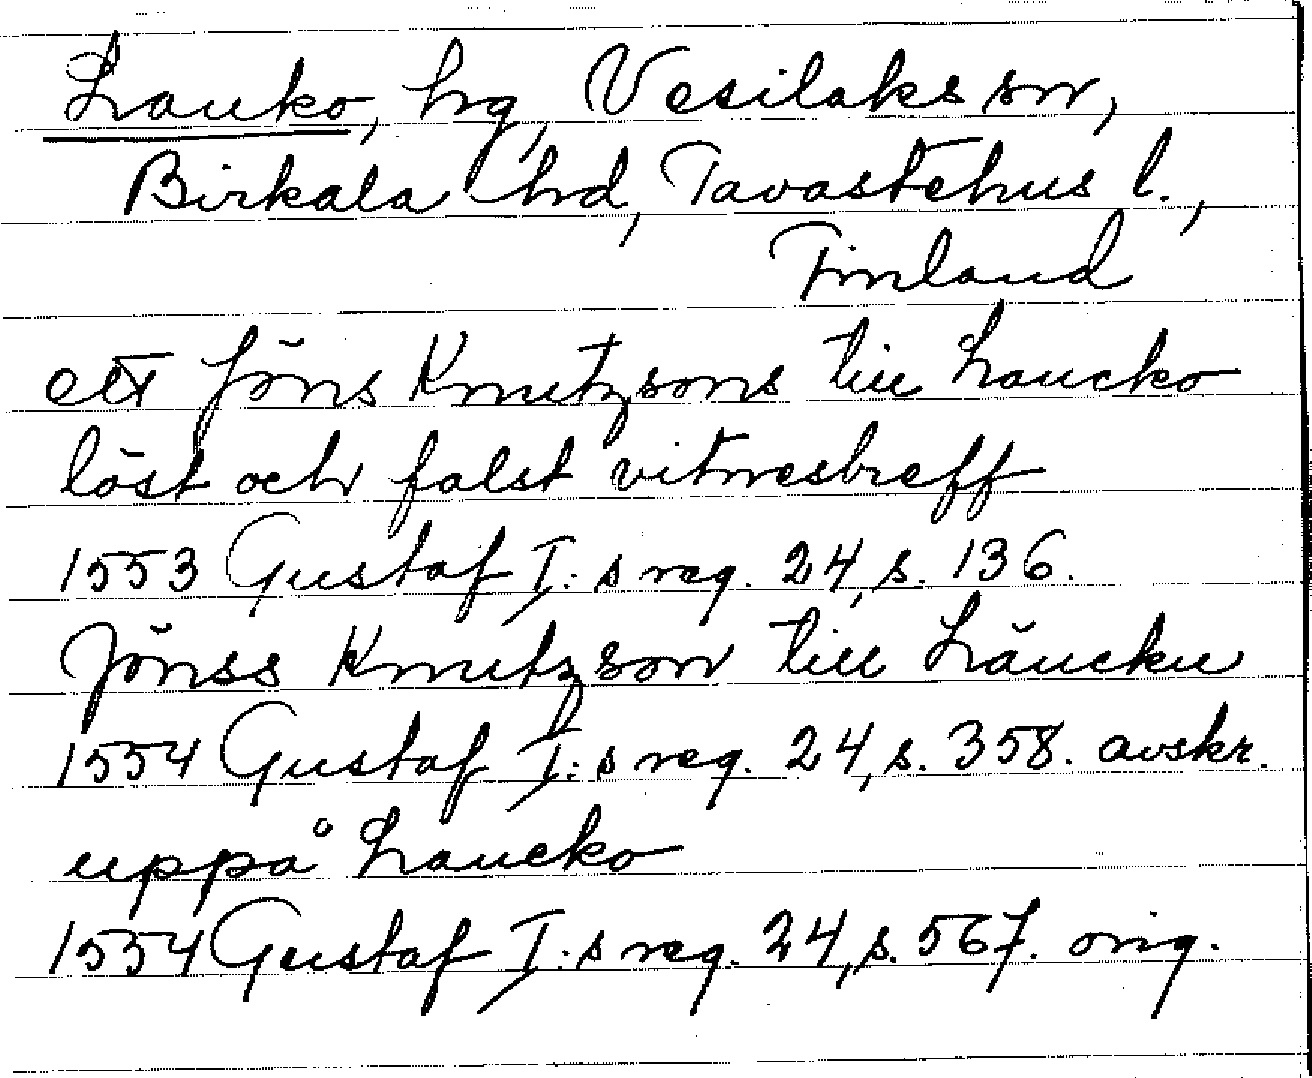 Lauko, hg, Vesilaks sn,
Birkala hd, Tavastehus l.,
Finland
ett Jöns Knutzsons till Laucko
löst och falst vitnesbreff
1553 Gustaf I:s reg. 24, s. 136.
Jönss Knutzson till Läucku
1554 Gustaf I:s reg. 24, s. 358. avskr.
uppå Laucko
1554 Gustaf I:s reg. 24, s. 567. orig.